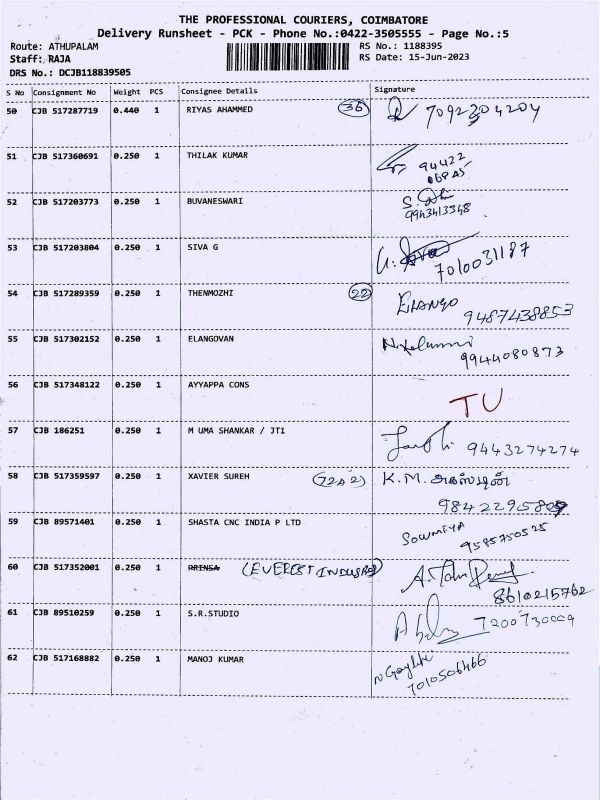 THE PROFESSIONAL COURIERS, COIMBATORE
Delivery Runsheet - PCK - Phone No.:0422-3505555 - Page No.:5
Route: ATHUPALAM RS No.: 1188395
Staff: RAJA RS Date: 15-Jun-2023
DRS No.: DCJB118839505
S No Consignment No Weight PCS Consignee Details Signature
50 CJB 517287719 0.440 1 RIYAS AHAMMED 36 7092304204
51 CJB 517360691 0.250 1 THILAK KUMAR 94422
52 CJB 517203773 0.250 1 BUVANESWARI
9943413348
53 CJB 517203804 0.250 1 SIVA G
7010031187
54 CJB 517289359 0.250 1 THENMOZHI 22 ELANGO
9487438853
55 CJB 517302152 0.250 1 ELANGOVAN
9944080873
56 CJB 517348122 0.250 1 AYYAPPA CONS TU
57 CJB 186251 0.250 1 M UMA SHANKAR / JTI 9443274274
58 CJB 517359597 0.250 1 XAVIER SUREH K.M. அகஸ்டின்
59 CJB 89571401 0.250 1 SHASTA CNC INDIA P LTD Sowmiya
9585750525
60 CJB 517352001 0.250 1 PRENSA (EVEREST
8610215762
61 CJB 89510259 0.250 1 S.R.STUDIO
62 CJB 517168882 0.250 1 MANOJ KUMAR
7010506466